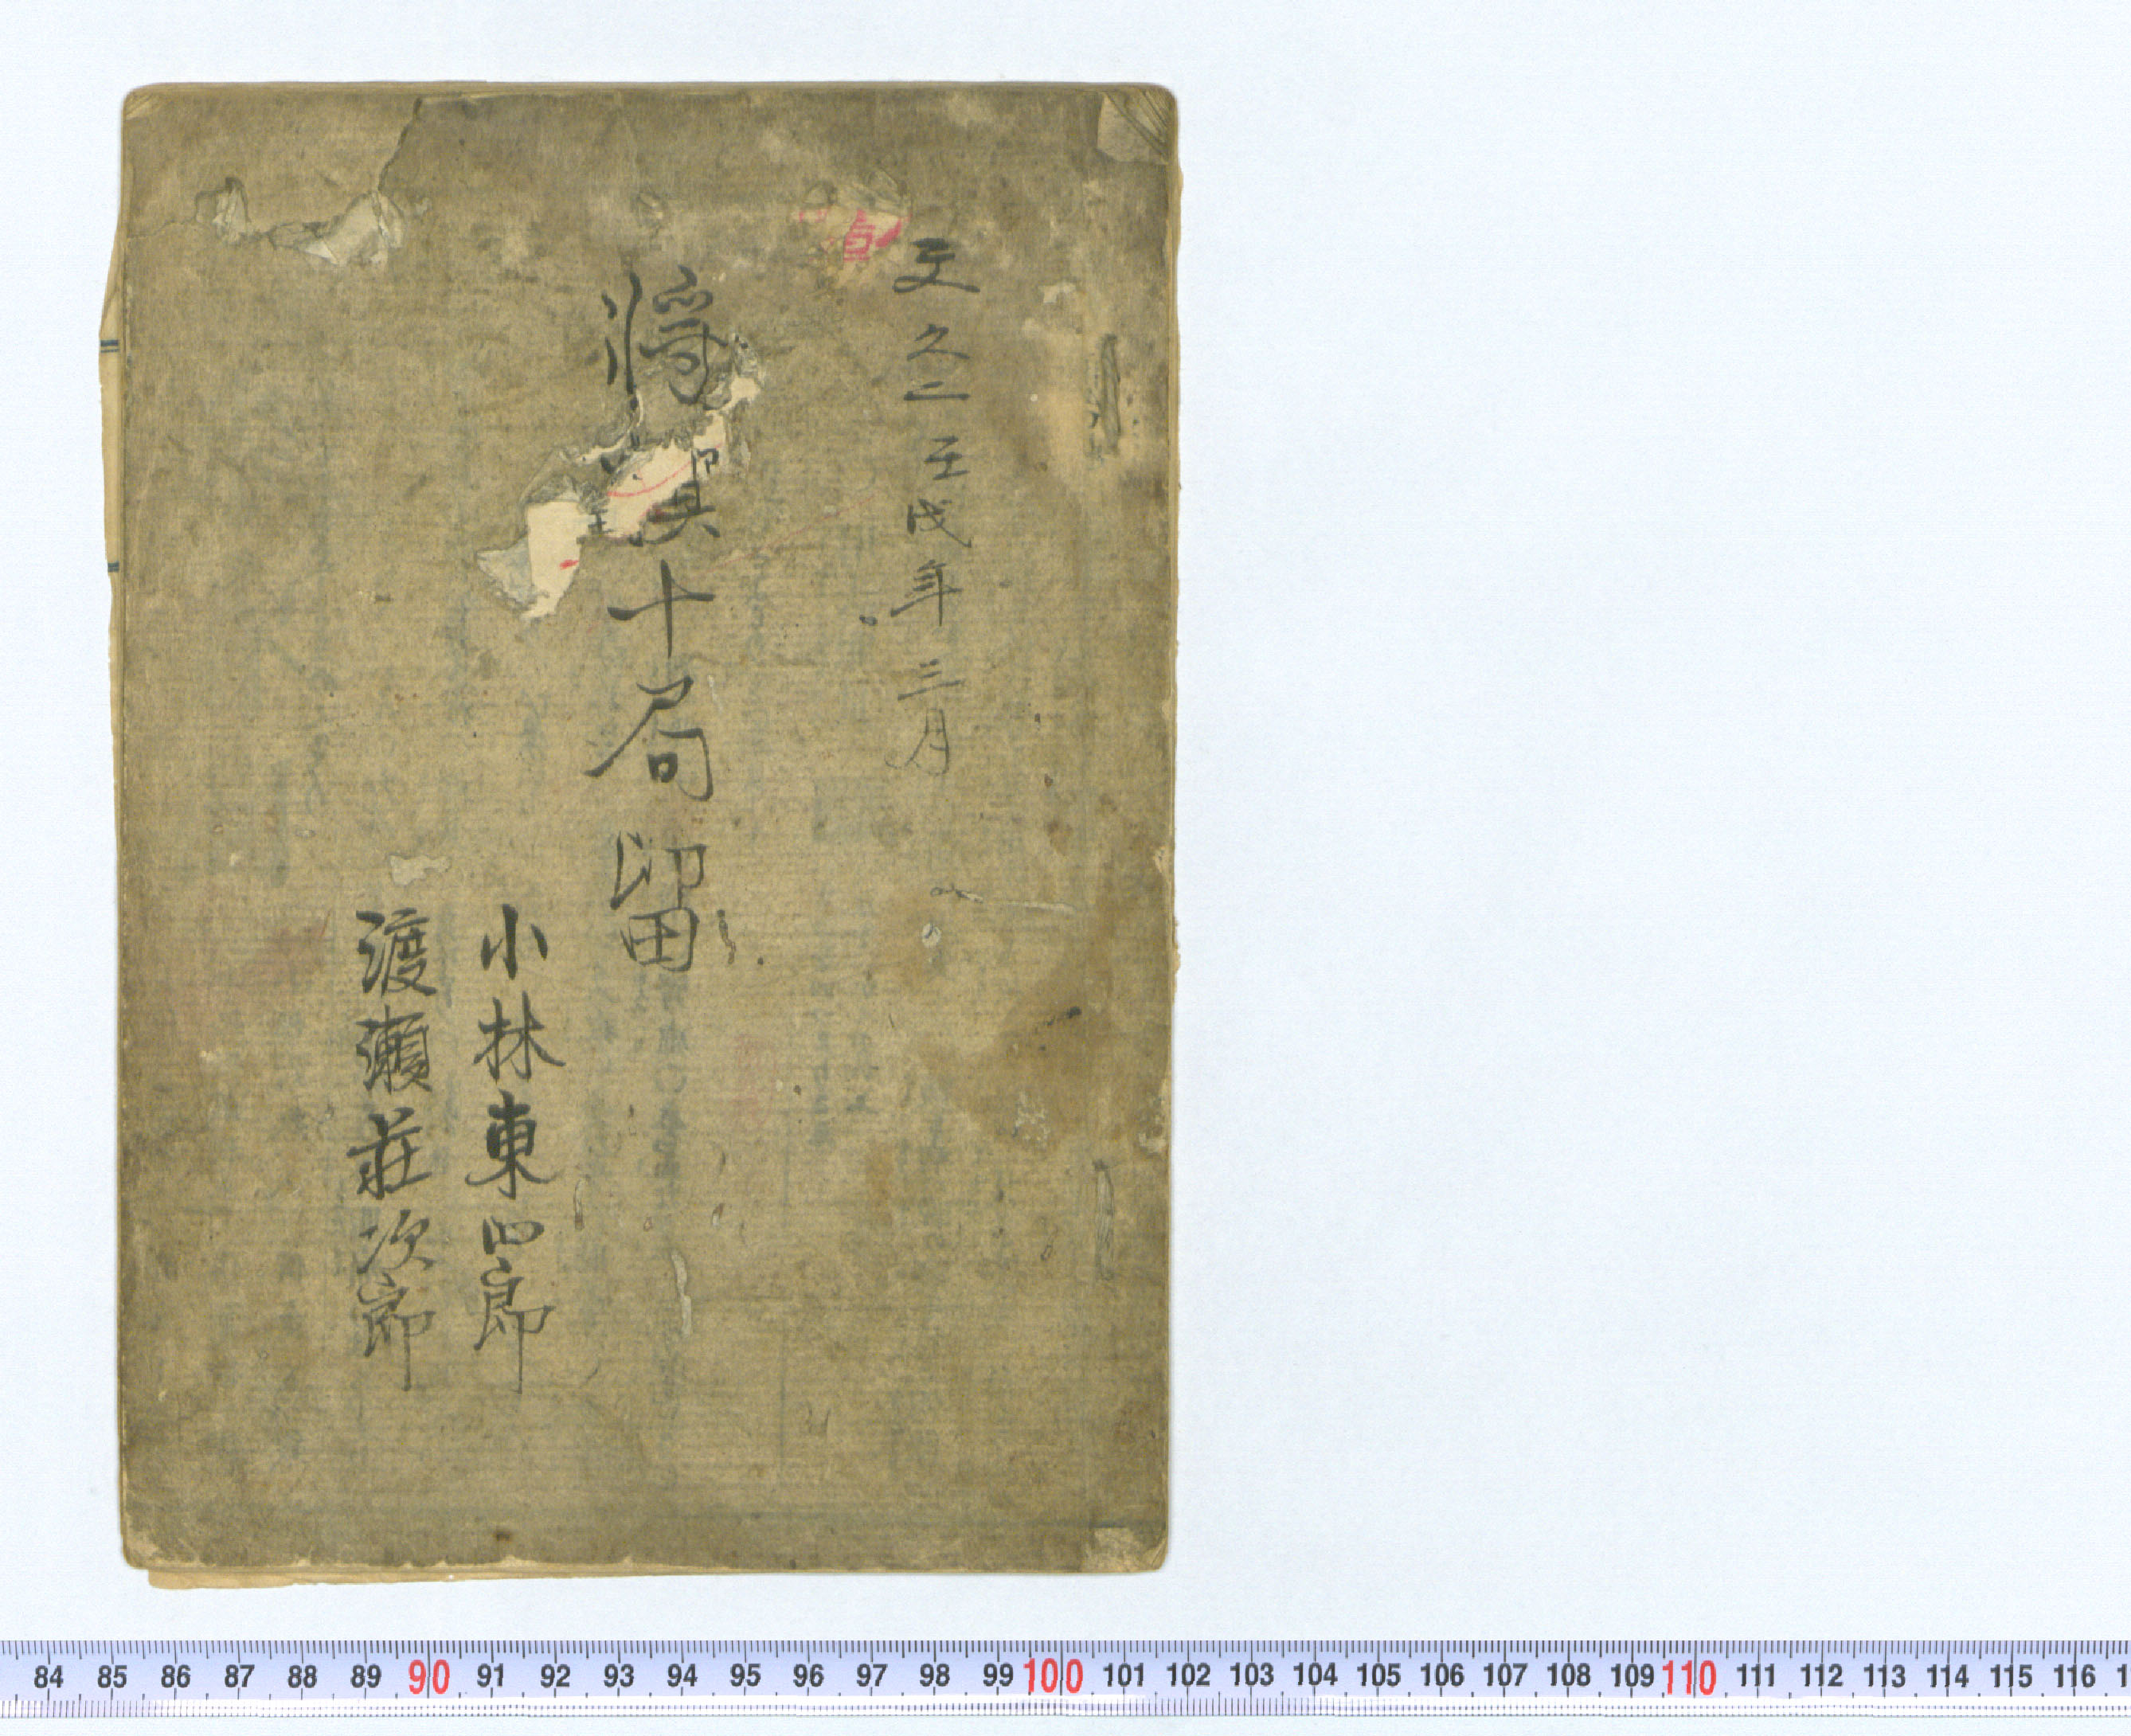 文久二壬戌年三月
将棋十局留
小林東四郎
渡瀬荘次郎
84 85 86 87 88 89 90 91 92 93 94 95 96 97 98 99 100 101 102 103 104 105 106 107 108 109 110 111 112 113 114 115 116